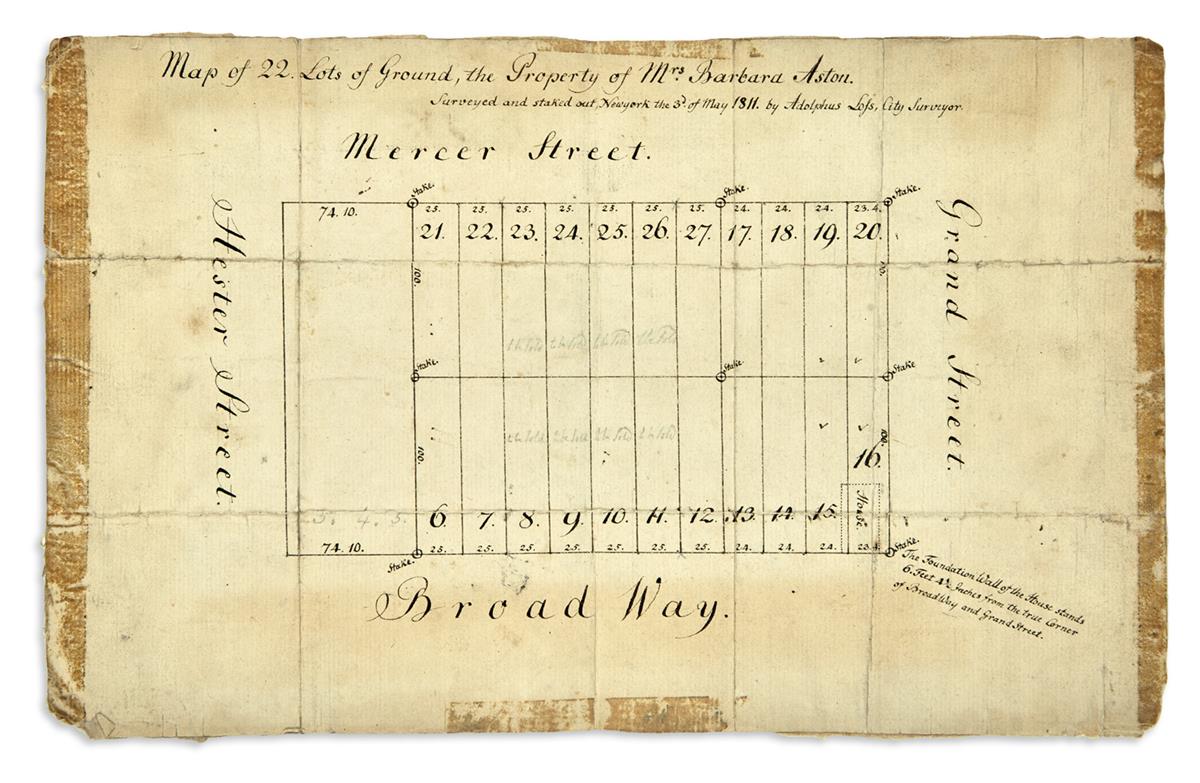 Map of 22. Lots of Ground, the Property of Mrs. Barbara Aston.
Surveyed and staked out, Newyork the 3d. of May 1811. by Adolphus Loss, City Surveyor.
Mercer Street.
Stake. Stake. Stake.
74. 10. 25. 25. 25. 25. 25. 25. 25. 24. 24. 24. 23. 4.
21. 22. 23. 24. 25. 26. 27. 17. 18. 19. 20.
Hester Street.
Grand Street.
100. 100.
Stake. Stake. Stake
100. 100.
16.
House.
3. 4. 5. 6. 7. 8. 9. 10. 11. 12. 13. 14. 15.
74. 10. 25. 25. 25. 25. 25. 25. 25. 24. 24. 24. 23. 4.
Stake. Stake.
The Foundation Wall of the House stands
6. Feet 4½ Inches from the true Corner
of BroadWay and Grand Street.
Broad Way.